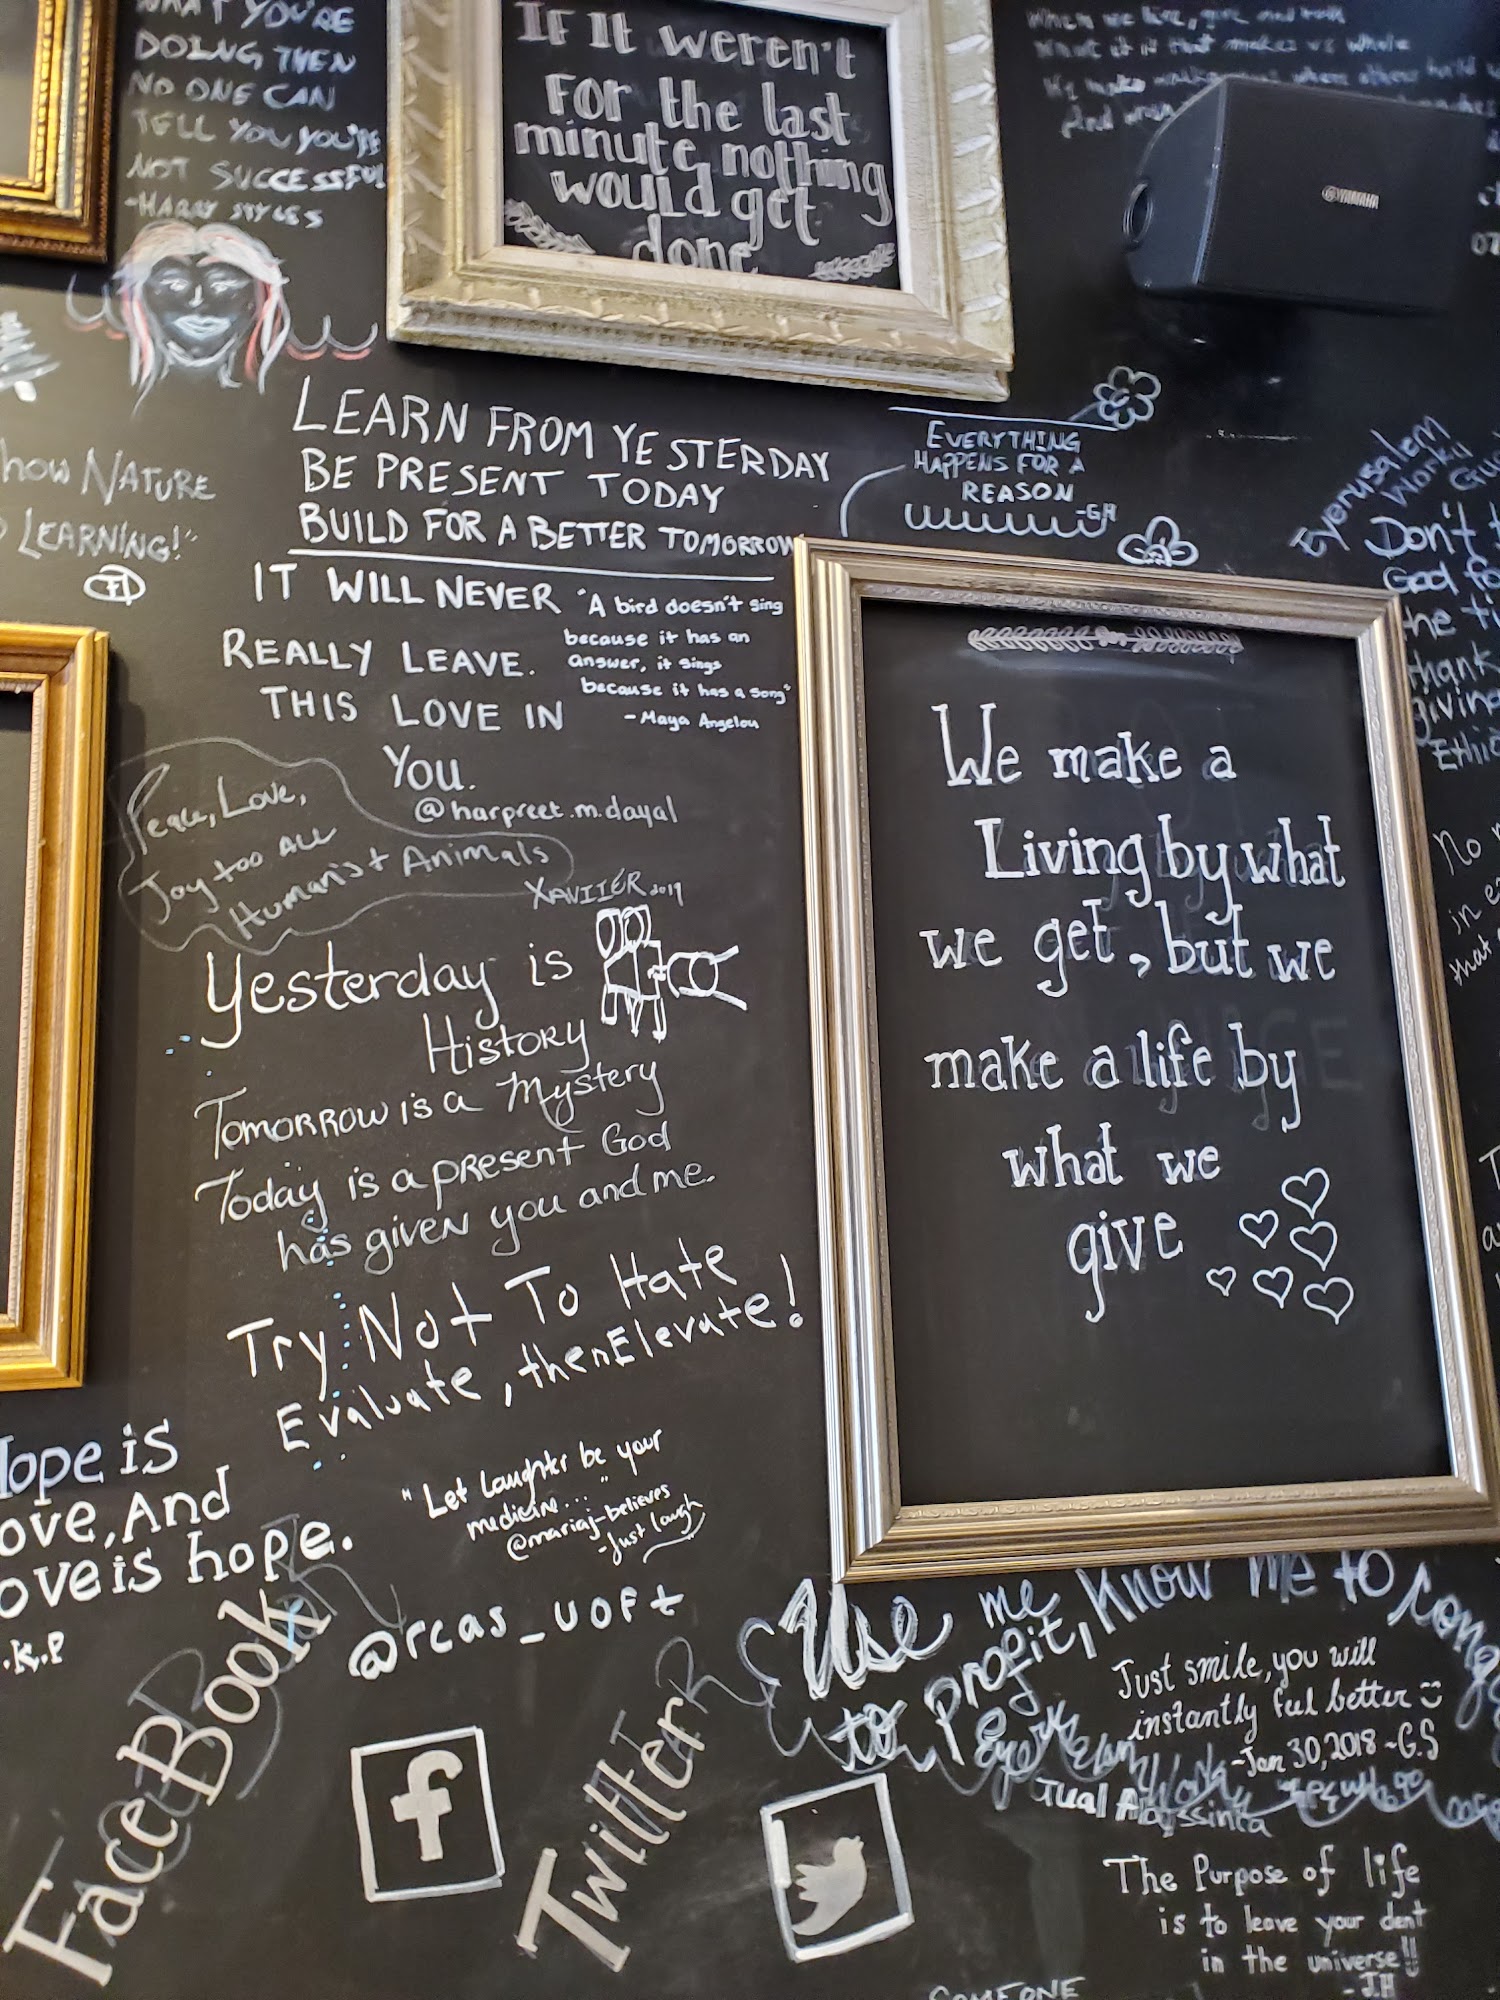 WHAT YOU'RE
DOING THEN
NO ONE CAN
TELL YOU YOU'RE
NOT SUCCESSFUL
-HARRY STYLES
IF IT weren't
FOR the last
minute nothing
would get
done
YAMAHA
LEARN FROM YESTERDAY
BE PRESENT TODAY
BUILD FOR A BETTER TOMORROW
EVERYTHING
HAPPENS FOR A
REASON
-GH
how NATURE
LEARNING!"
IT WILL NEVER
REALLY LEAVE.
THIS LOVE IN
YOU.
@harpreet.m.dayal
"A bird doesn't sing
because it has an
answer, it sings
because it has a song"
- Maya Angelou
Peace, Love,
Joy too ALL
Humans + Animals
XAVIIER 2019
Yesterday is
History
Tomorrow is a Mystery
Today is a present God
has given you and me.
Try Not To Hate
Evaluate, then Elevate!
We make a
Living by what
we get, but we
make a life by
what we
give
Don't
God for
the
thank
giving
No
in
that
Hope is
ove, And
ove is hope.
.K.P
"Let laughter be your
medicine..."
@mariaj_believes
-Just laugh
@rcas_uoft
FaceBook
f
TwitteR
Use me
to profit, know me to
Just smile, you will
instantly feel better
-Jan 30, 2018 -G.S
The Purpose of life
is to leave your dent
in the universe!!
- J.H
SOMEONE